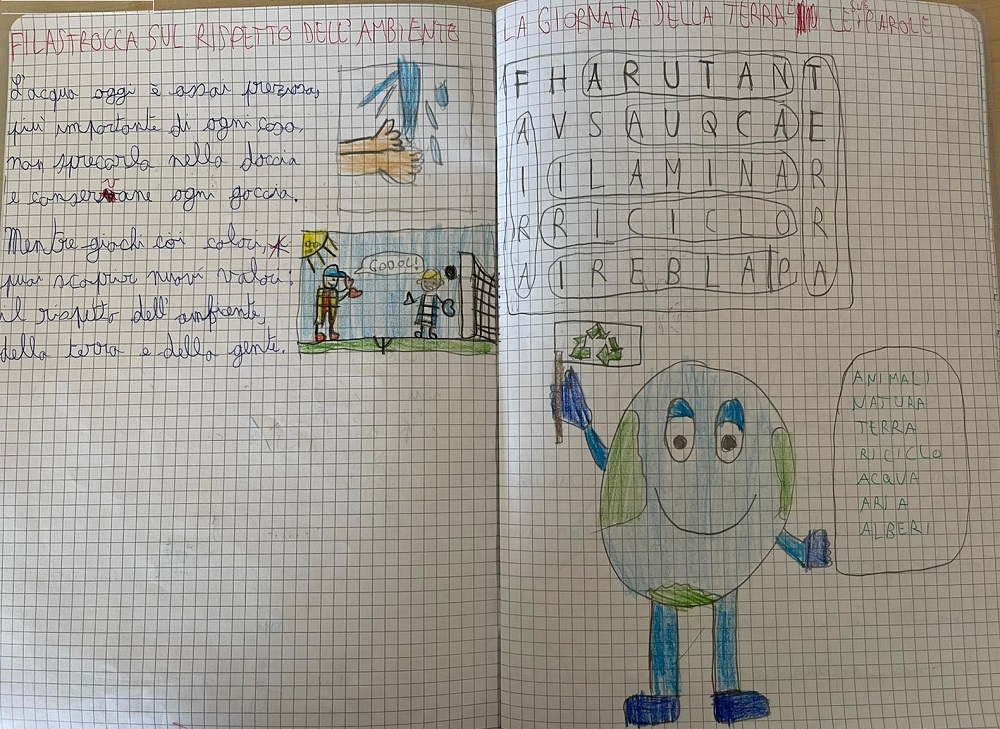 FILASTROCCA SUL RISPETTO DELL'AMBIENTE
L'acqua oggi è assai preziosa,
più importante di ogni cosa,
non sprecarla nella doccia
e conservane ogni goccia.
Mentre giochi coi colori,
puoi scoprir nuovi valori:
il rispetto dell'ambiente,
della terra e della gente.
GOOOL!
LA GIORNATA DELLA TERRA E LE SUE PAROLE
F H A R U T A N T
A V S A U Q C A E
I I L A M I N A R
R R I C I C L O R
A I R E B L A P A
ANIMALI
NATURA
TERRA
RICICLO
ACQUA
ARIA
ALBERI